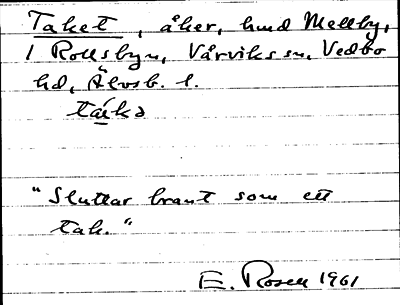 Taket, åker, hmd Mellby,
1 Rollsbyn, Vårviks sn, Vedbo
hd, Älvsb. l.
"Sluttar brant som ett
tak."
E. Rosell 1961